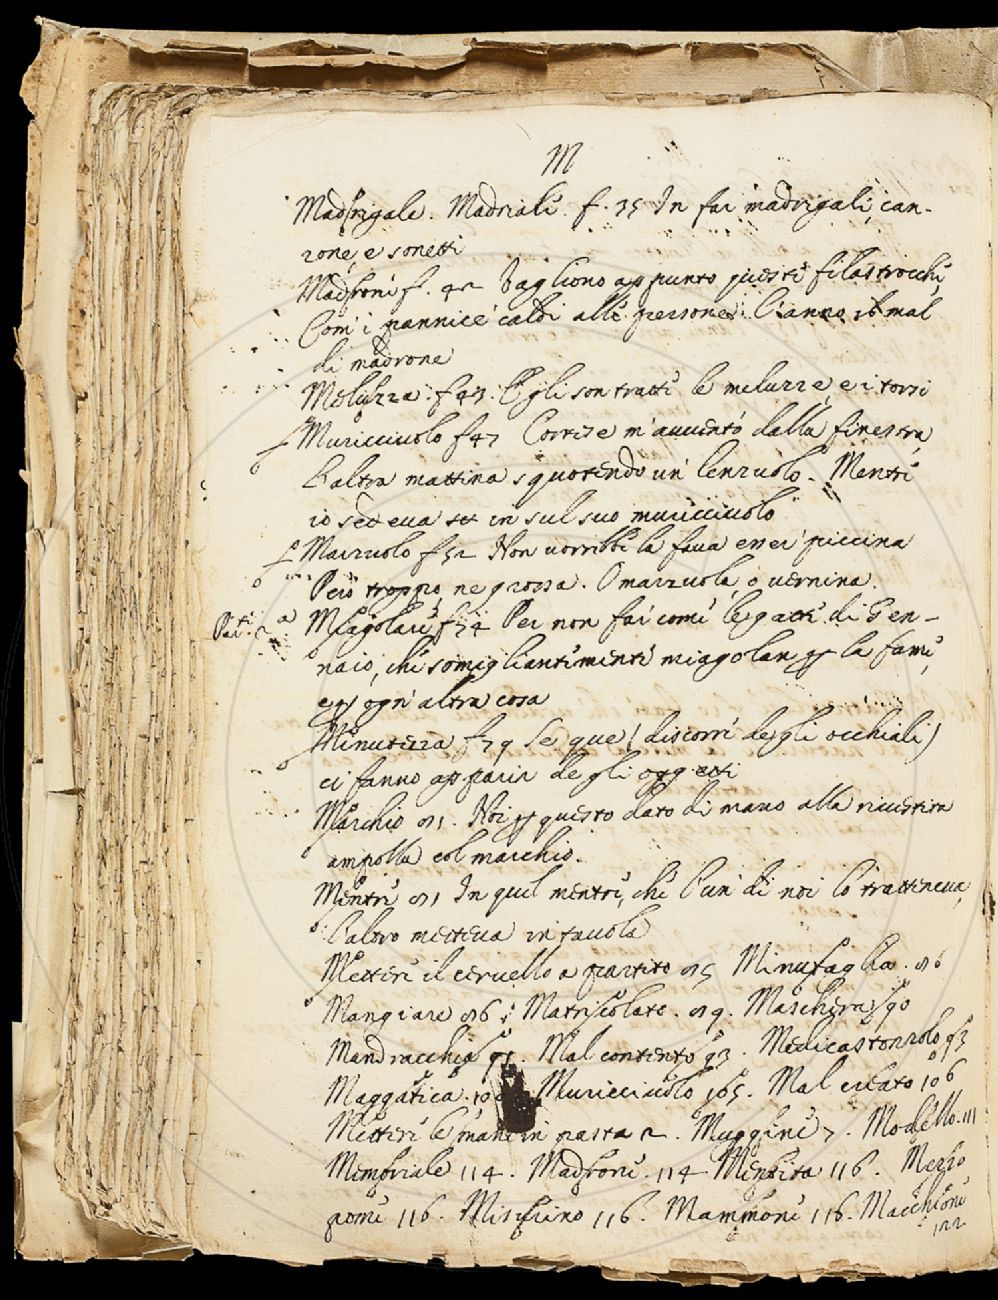 M
Madrigale. Madriali. f. 35 In far madrigali, can-
zone, e sonetti
Madroni f. 42 Vagliono appunto questi filastrocchi,
Com' i pannice' caldi alle persone Ch'anno il mal
di madrone
Meluzza. f 43. Egli son tratti le meluzze, e i torsi
Muricciuolo f 47 Cortese m'avventò dalla finestra
L'altra mattina squotendo un lenzuolo. Mentre
io sedeva in sul suo muricciuolo
Marzuolo f 52 Non vorrebbe la fava esser piccina
Però troppo, ne grossa. O marzuola, o vernina.
Miagolare f 74 Per non far come le gatte di Gen-
naio, che somigliantemente miagolan per la fame,
e per ogn' altra cosa
Minutezza f 79 Se que (discorre degli occhiali)
ci fanno apparir degli oggetti
Marchio 81. Noi per questo dato di mano alla rivestita
ampolla col marchio.
Mentre 81 In quel mentre, che l'un di noi lo tratteneva,
L'altro metteva in tavola
Mettere il cervello a partito 85 Minutaglia. 86
Mangiare 86 Matricolato. 89. Maschera 90
Mandracchia 91. Mal contento 93. Medicastronzolo 93
Maggatica. Muricciuolo 105. Mal creato 106
Mettere le mani in pasta 2. Muggine 7. Modello. 111
Memoriale 114. Madroni. 114 Mentita 116. Mezzo
nome 116. Meschino 116. Mammone 116. Macchione
122